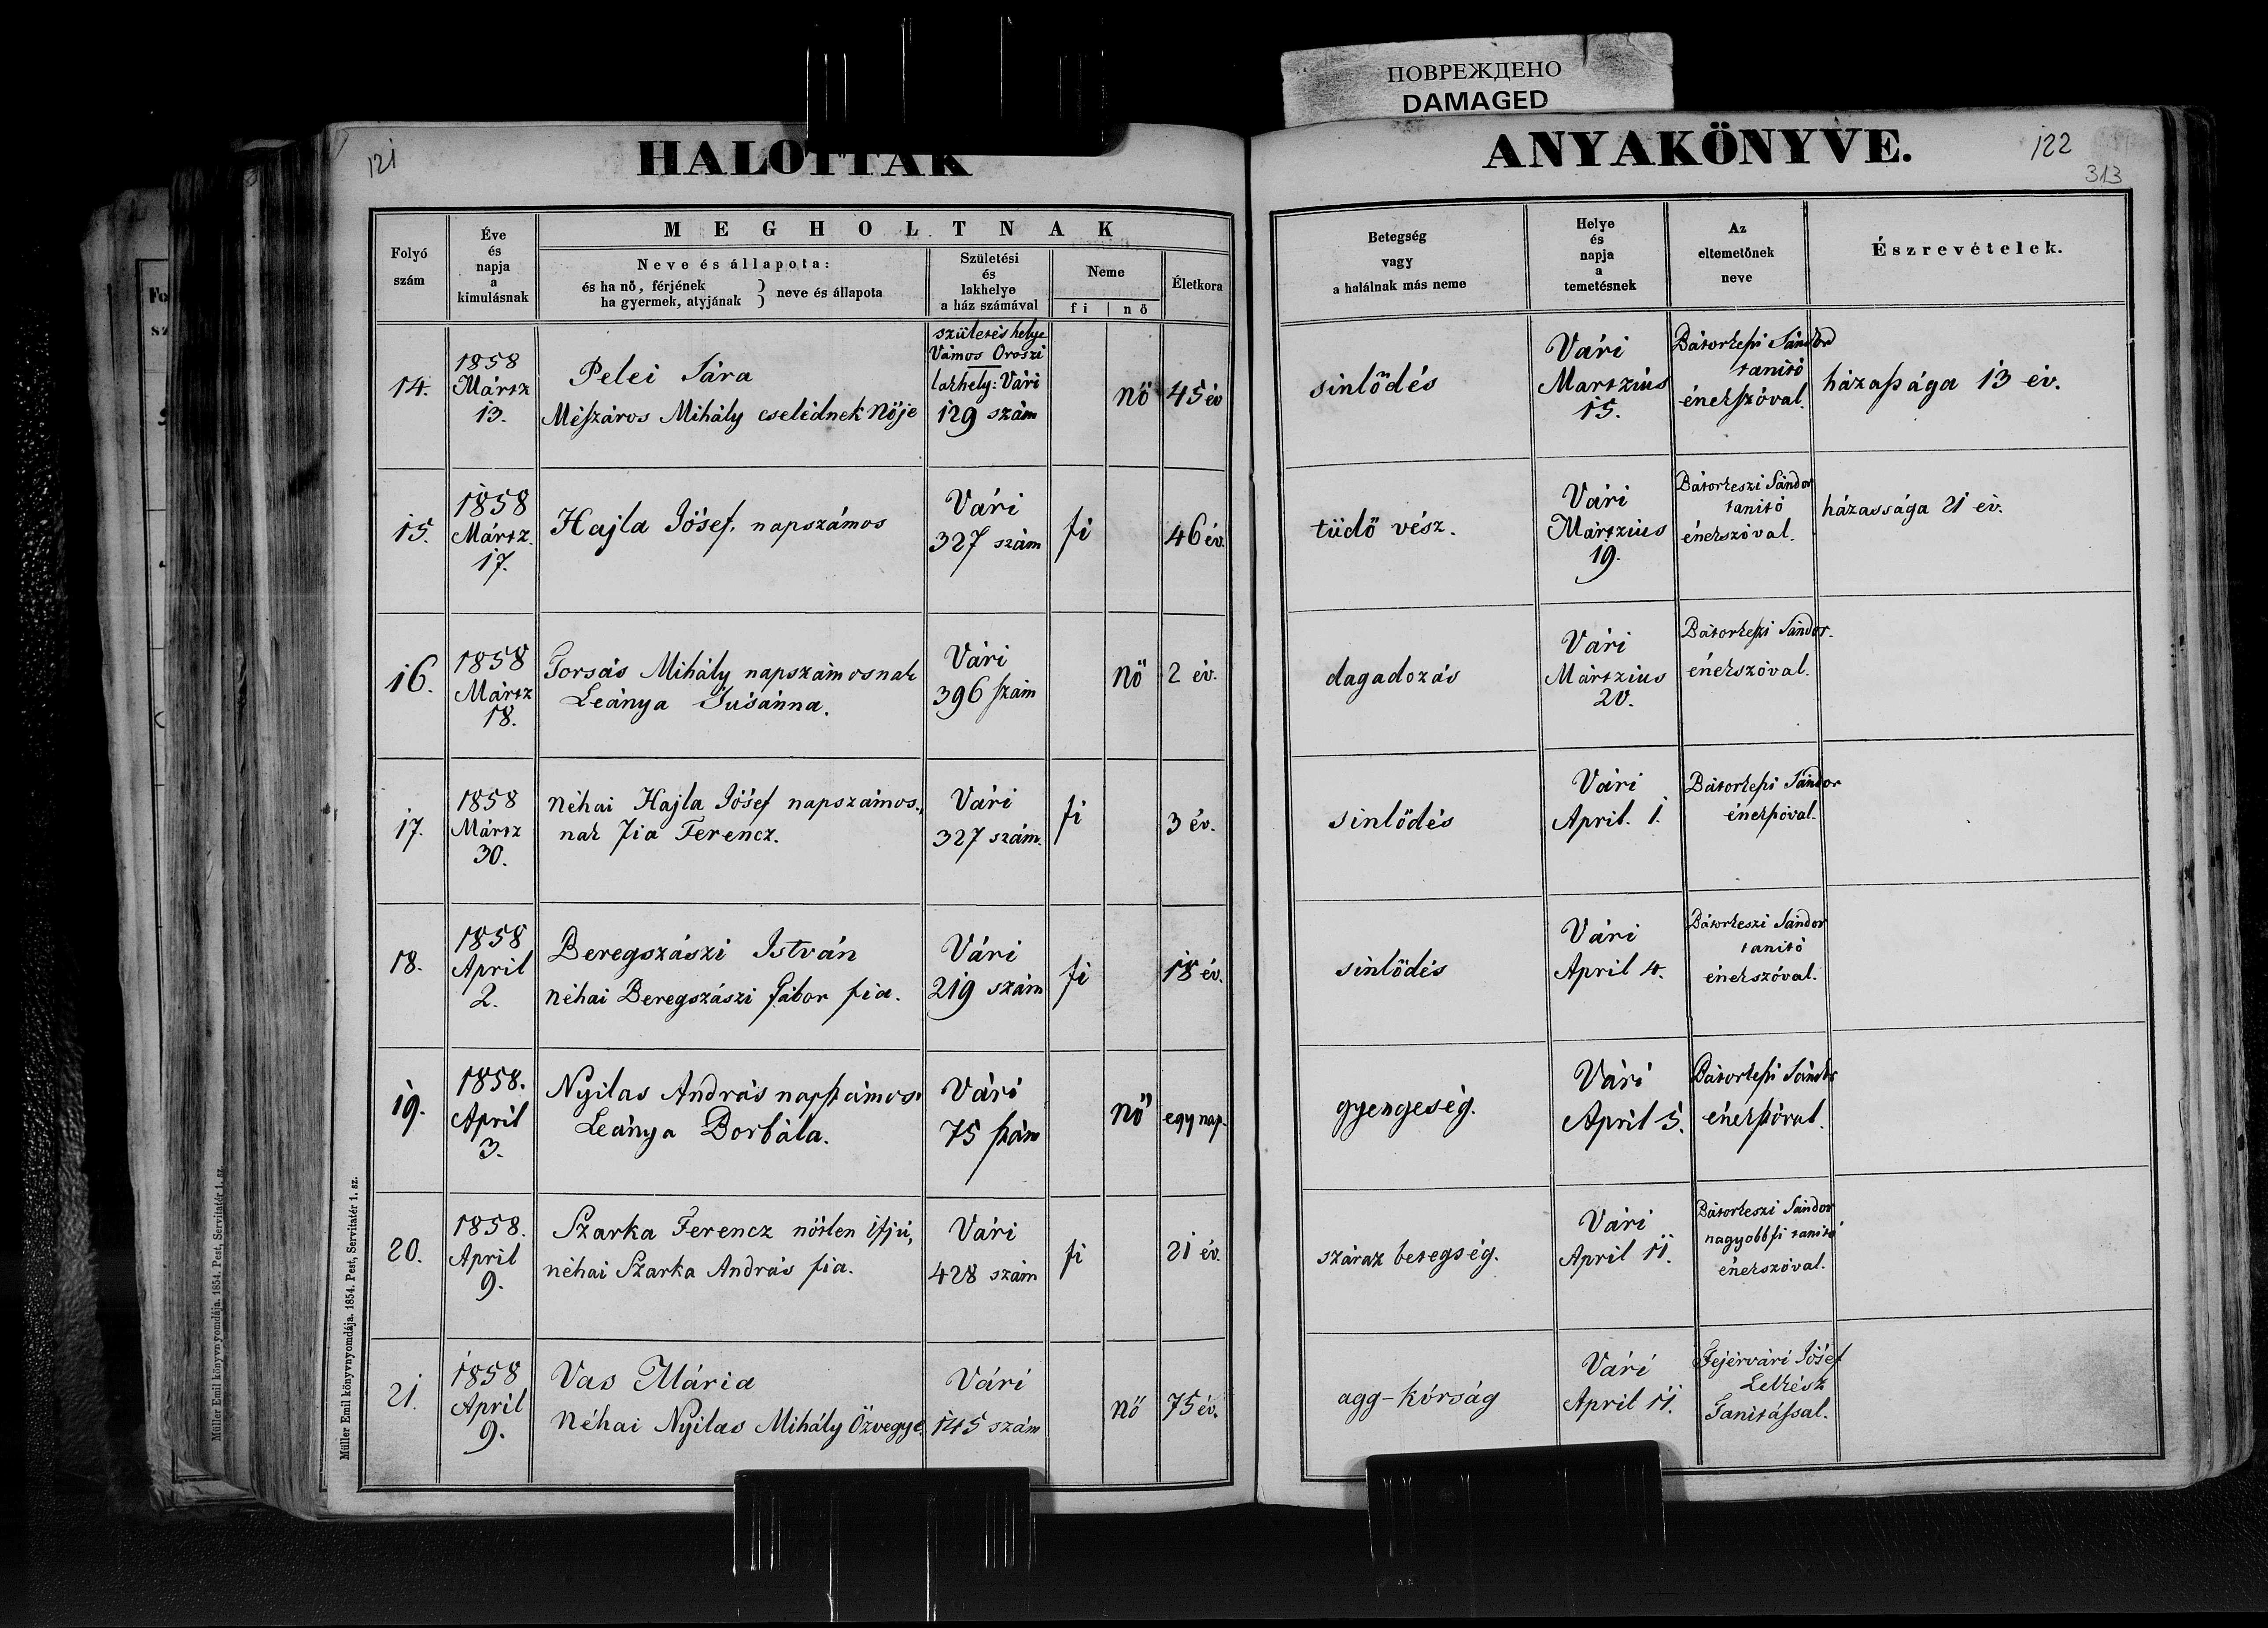 ПОВРЕЖДЕНО
DAMAGED
121
HALOTTAK
ANYAKÖNYVE.
122
313
Folyó
szám
Éve
és
napja
a
kimulásnak
MEGHOLTNAK
Neve és állapota:
és ha nő, férjének
ha gyermek, atyjának } neve és állapota
Születési
és
lakhelye
a ház számával
Neme
fi | nő
Életkora
Betegség
vagy
a halálnak más neme
Helye
és
napja
a
temetésnek
Az
eltemetőnek
neve
Észrevételek.
14.
1858
Mártz
13.
Pelei Sára
Mészáros Mihály cselédnek Nője
születés helye
Vámos Oroszi
lakhely: Vári
129 szám
nő
45 év
sinlődés
Vári
Martzius
15.
Bátorkeszi Sándor
tanitó
énekszóval.
házassága 13 év.
15.
1858
Mártz.
17.
Hajla Jósef. napszámos
Vári
327 szám
fi
46 év.
tüdő vész.
Vári
Mártzius
19.
Bátorkeszi Sándor
tanitó
énekszóval.
házassága 21 év.
16.
1858
Mártz
18.
Forsás Mihály napszámosnak
Leánya Susánna.
Vári
396 szám
nő
2 év.
dagadozás
Vári
Mártzius
20.
Bátorkeszi Sándor.
énekszóval.
17.
1858
Mártz
30.
néhai Hajla Jósef napszámos,,
nak fia Ferencz.
Vári
327 szám.
fi
3 év.
sinlődés
Vári
April. 1.
Bátorkeszi Sándor
énekszóval.
18.
1858
April
2.
Beregszászi István
néhai Beregszászi Gábor fia.
Vári
219 szám
fi
18 év.
sinlődés
Vári
April 4.
Bátorkeszi Sándor
tanitó
énekszóval.
19.
1858.
April
3.
Nyilas András napszámos.
Leánya Borbála.
Vári
75 szám
nő
egy nap.
gyengeség.
Vári
April 5.
Bátorkeszi Sándor
énekszóval.
20.
1858.
April
9.
Szarka Ferencz nőtlen ifjú,
néhai Szarka András fia.
Vári
428 szám
fi
21 év.
száraz betegség.
Vári
April 11.
Bátorkeszi Sándor
nagyobb fi tanitó
énekszóval.
21.
1858
April
9.
Vas Mária
Néhai Nyilas Mihály Özvegye.
Vári
145 szám
nő
75 év.
agg-kórság
Vári
April 11.
Fejérvári Jósef
Lelkész
Tanitással.
Müller Emil könyvnyomdája. 1854. Pest, Servitatér 1. sz.
Müller Emil könyvnyomdája. 1854. Pest, Servitatér 1. sz.